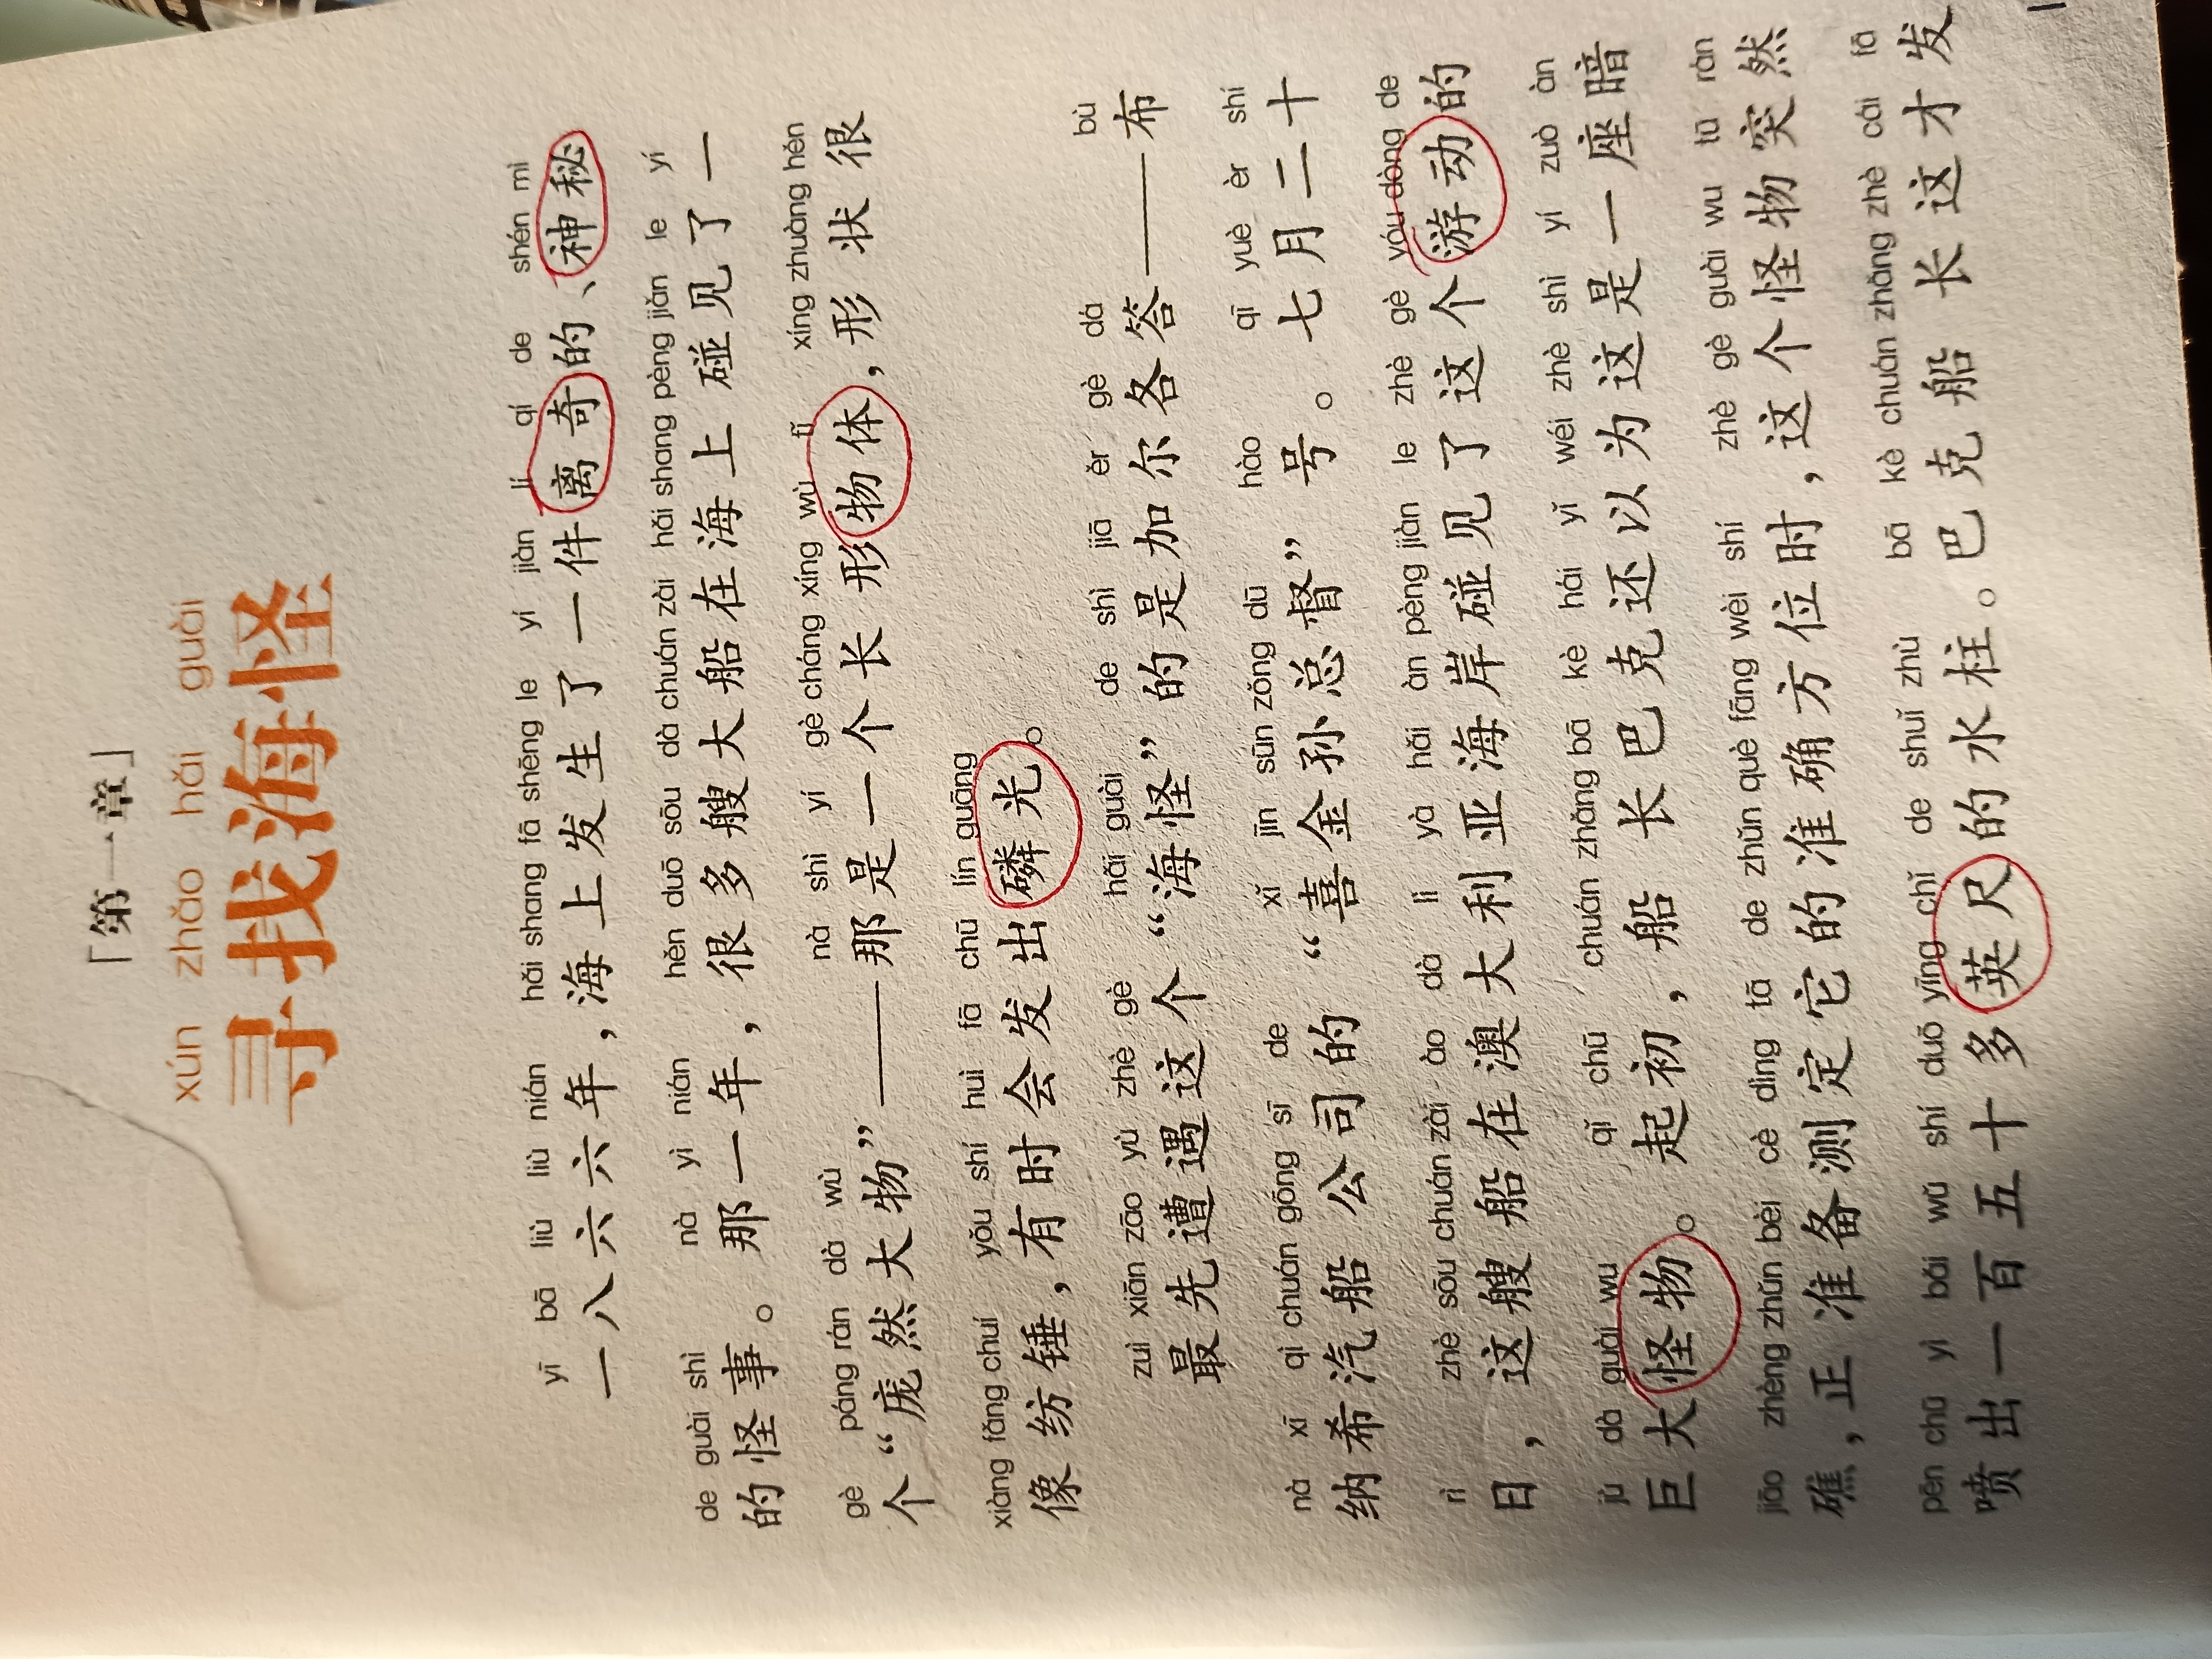 「第一章」
xún zhǎo hǎi guài
寻找海怪
yī bā liù liù nián hǎi shang fā shēng le yí jiàn lí qí de shén mì
一八六六年，海上发生了一件离奇的、神秘
de guài shì nà yì nián hěn duō sōu dà chuán zài hǎi shang pèng jiàn le yí
的怪事。那一年，很多艘大船在海上碰见了一
gè páng rán dà wù nà shì yí gè cháng xíng wù tǐ xíng zhuàng hěn
个“庞然大物”——那是一个长形物体，形状很
xiàng fǎng chuí yǒu shí huì fā chū lín guāng
像纺锤，有时会发出磷光。
zuì xiān zāo yù zhè gè hǎi guài de shì jiā ěr gè dá bù
最先遭遇这个“海怪”的是加尔各答——布
nà xī qì chuán gōng sī de xǐ jīn sūn zǒng dū hào qī yuè èr shí
纳希汽船公司的“喜金孙总督”号。七月二十
rì zhè sōu chuán zài ào dà lì yà hǎi àn pèng jiàn le zhè gè yóu dòng de
日，这艘船在澳大利亚海岸碰见了这个游动的
jù dà guài wu qǐ chū chuán zhǎng bā kè hái yǐ wéi zhè shì yí zuò àn
巨大怪物。起初，船长巴克还以为这是一座暗
jiāo zhèng zhǔn bèi cè dìng tā de zhǔn què fāng wèi shí zhè gè guài wu tū rán
礁，正准备测定它的准确方位时，这个怪物突然
pēn chū yì bǎi wǔ shí duō yīng chǐ de shuǐ zhù bā kè chuán zhǎng zhè cái fā
喷出一百五十多英尺的水柱。巴克船长这才发